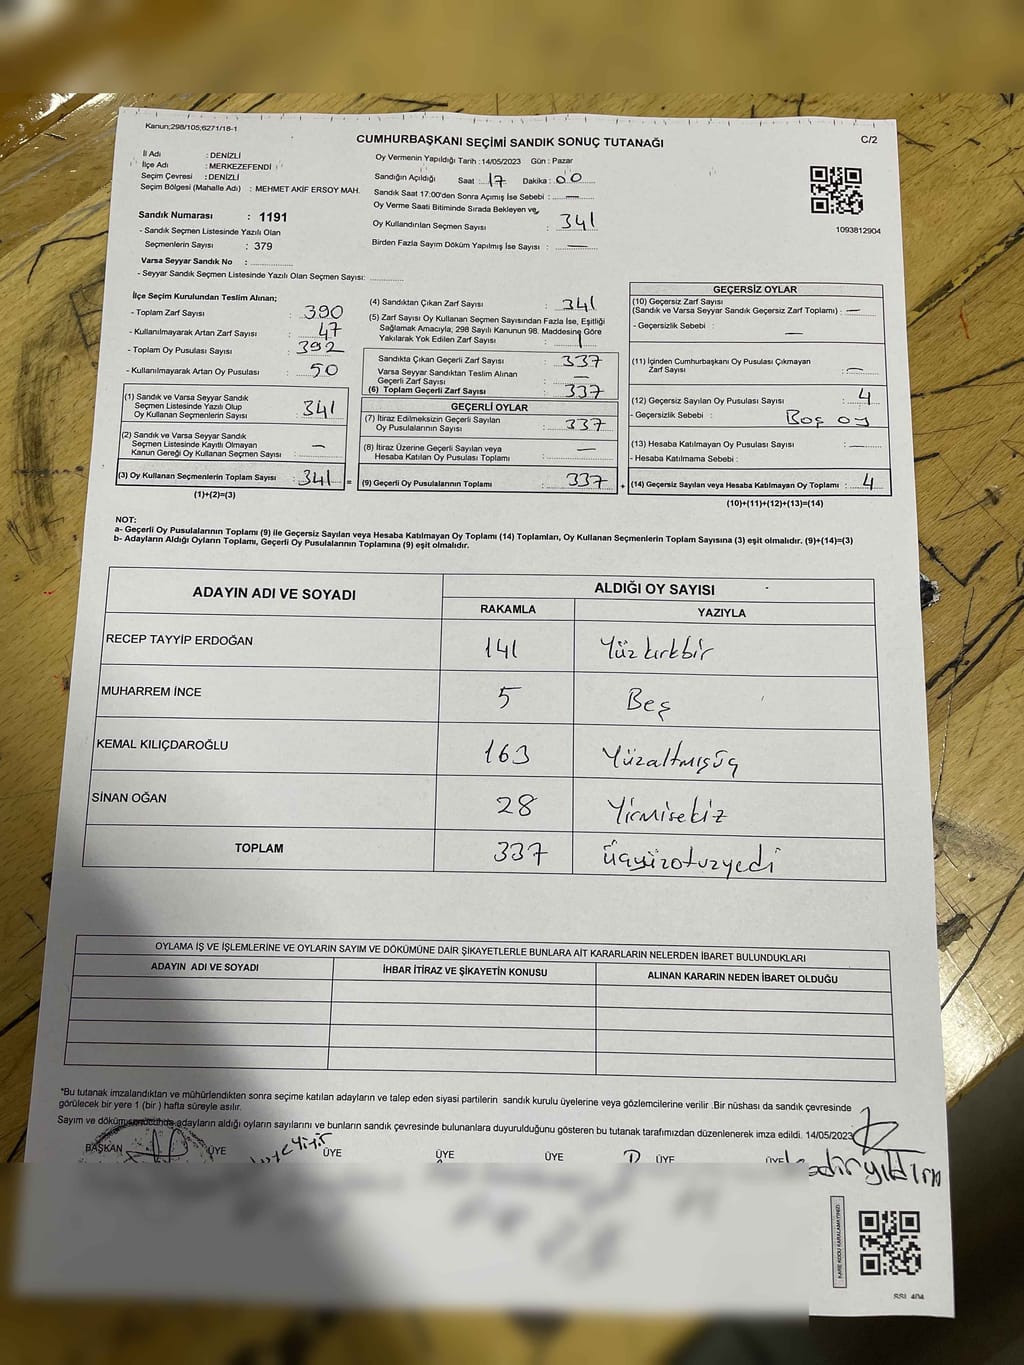 Kanun;298/105;6271/18-1
CUMHURBAŞKANI SEÇİMİ SANDIK SONUÇ TUTANAĞI
C/2
İl Adı : DENİZLİ
İlçe Adı : MERKEZEFENDİ
Seçim Çevresi : DENİZLİ
Seçim Bölgesi (Mahalle Adı) : MEHMET AKİF ERSOY MAH.
Sandık Numarası : 1191
- Sandık Seçmen Listesinde Yazılı Olan
Seçmenlerin Sayısı : 379
Varsa Seyyar Sandık No :
- Seyyar Sandık Seçmen Listesinde Yazılı Olan Seçmen Sayısı:
Oy Vermenin Yapıldığı Tarih : 14/05/2023 Gün : Pazar
Sandığın Açıldığı Saat : 17 Dakika : 00
Sandık Saat 17:00'den Sonra Açımış İse Sebebi : —
Oy Verme Saati Bitiminde Sırada Bekleyen ve
Oy Kullandırılan Seçmen Sayısı : 341
Birden Fazla Sayım Döküm Yapılmış İse Sayısı : —
1093812904
İlçe Seçim Kurulundan Teslim Alınan;
- Toplam Zarf Sayısı : 390
- Kullanılmayarak Artan Zarf Sayısı : 47
- Toplam Oy Pusulası Sayısı : 392
- Kullanılmayarak Artan Oy Pusulası : 50
(1) Sandık ve Varsa Seyyar Sandık
Seçmen Listesinde Yazılı Olup
Oy Kullanan Seçmenlerin Sayısı : 341
(2) Sandık ve Varsa Seyyar Sandık
Seçmen Listesinde Kayıtlı Olmayan
Kanun Gereği Oy Kullanan Seçmen Sayısı : —
(3) Oy Kullanan Seçmenlerin Toplam Sayısı : 341 =
(1)+(2)=(3)
(4) Sandıktan Çıkan Zarf Sayısı : 341
(5) Zarf Sayısı Oy Kullanan Seçmen Sayısından Fazla İse, Eşitliği
Sağlamak Amacıyla; 298 Sayılı Kanunun 98. Maddesine Göre
Yakılarak Yok Edilen Zarf Sayısı :
Sandıkta Çıkan Geçerli Zarf Sayısı : 337
Varsa Seyyar Sandıktan Teslim Alınan
Geçerli Zarf Sayısı : —
(6) Toplam Geçerli Zarf Sayısı : 337
GEÇERLİ OYLAR
(7) İtiraz Edilmeksizin Geçerli Sayılan
Oy Pusulalarının Sayısı : 337
(8) İtiraz Üzerine Geçerli Sayılan veya
Hesaba Katılan Oy Pusulası Toplamı : —
(9) Geçerli Oy Pusulalarının Toplamı : 337 +
GEÇERSİZ OYLAR
(10) Geçersiz Zarf Sayısı
(Sandık ve Varsa Seyyar Sandık Geçersiz Zarf Toplamı) : —
- Geçersizlik Sebebi : —
(11) İçinden Cumhurbaşkanı Oy Pusulası Çıkmayan
Zarf Sayısı : —
(12) Geçersiz Sayılan Oy Pusulası Sayısı : 4
- Geçersizlik Sebebi : Boş oy
(13) Hesaba Katılmayan Oy Pusulası Sayısı : —
- Hesaba Katılmama Sebebi :
(14) Geçersiz Sayılan veya Hesaba Katılmayan Oy Toplamı : 4
(10)+(11)+(12)+(13)=(14)
NOT:
a- Geçerli Oy Pusulalarının Toplamı (9) ile Geçersiz Sayılan veya Hesaba Katılmayan Oy Toplamı (14) Toplamları, Oy Kullanan Seçmenlerin Toplam Sayısına (3) eşit olmalıdır. (9)+(14)=(3)
b- Adayların Aldığı Oyların Toplamı, Geçerli Oy Pusulalarının Toplamına (9) eşit olmalıdır.
ADAYIN ADI VE SOYADI
ALDIĞI OY SAYISI
RAKAMLA YAZIYLA
RECEP TAYYİP ERDOĞAN 141 Yüzkırkbir
MUHARREM İNCE 5 Beş
KEMAL KILIÇDAROĞLU 163 Yüzaltmışüç
SİNAN OĞAN 28 Yirmisekiz
TOPLAM 337 Üçyüzotuzyedi
OYLAMA İŞ VE İŞLEMLERİNE VE OYLARIN SAYIM VE DÖKÜMÜNE DAİR ŞİKAYETLERLE BUNLARA AİT KARARLARIN NELERDEN İBARET BULUNDUKLARI
ADAYIN ADI VE SOYADI İHBAR İTİRAZ VE ŞİKAYETİN KONUSU ALINAN KARARIN NEDEN İBARET OLDUĞU
*Bu tutanak imzalandıktan ve mühürlendikten sonra seçime katılan adayların ve talep eden siyasi partilerin sandık kurulu üyelerine veya gözlemcilerine verilir .Bir nüshası da sandık çevresinde
görülecek bir yere 1 (bir ) hafta süreyle asılır.
Sayım ve döküm sonucunda adayların aldığı oyların sayılarını ve bunların sandık çevresinde bulunanlara duyurulduğunu gösteren bu tutanak tarafımızdan düzenlenerek imza edildi. 14/05/2023
BAŞKAN ÜYE ÜYE ÜYE ÜYE ÜYE ÜYE